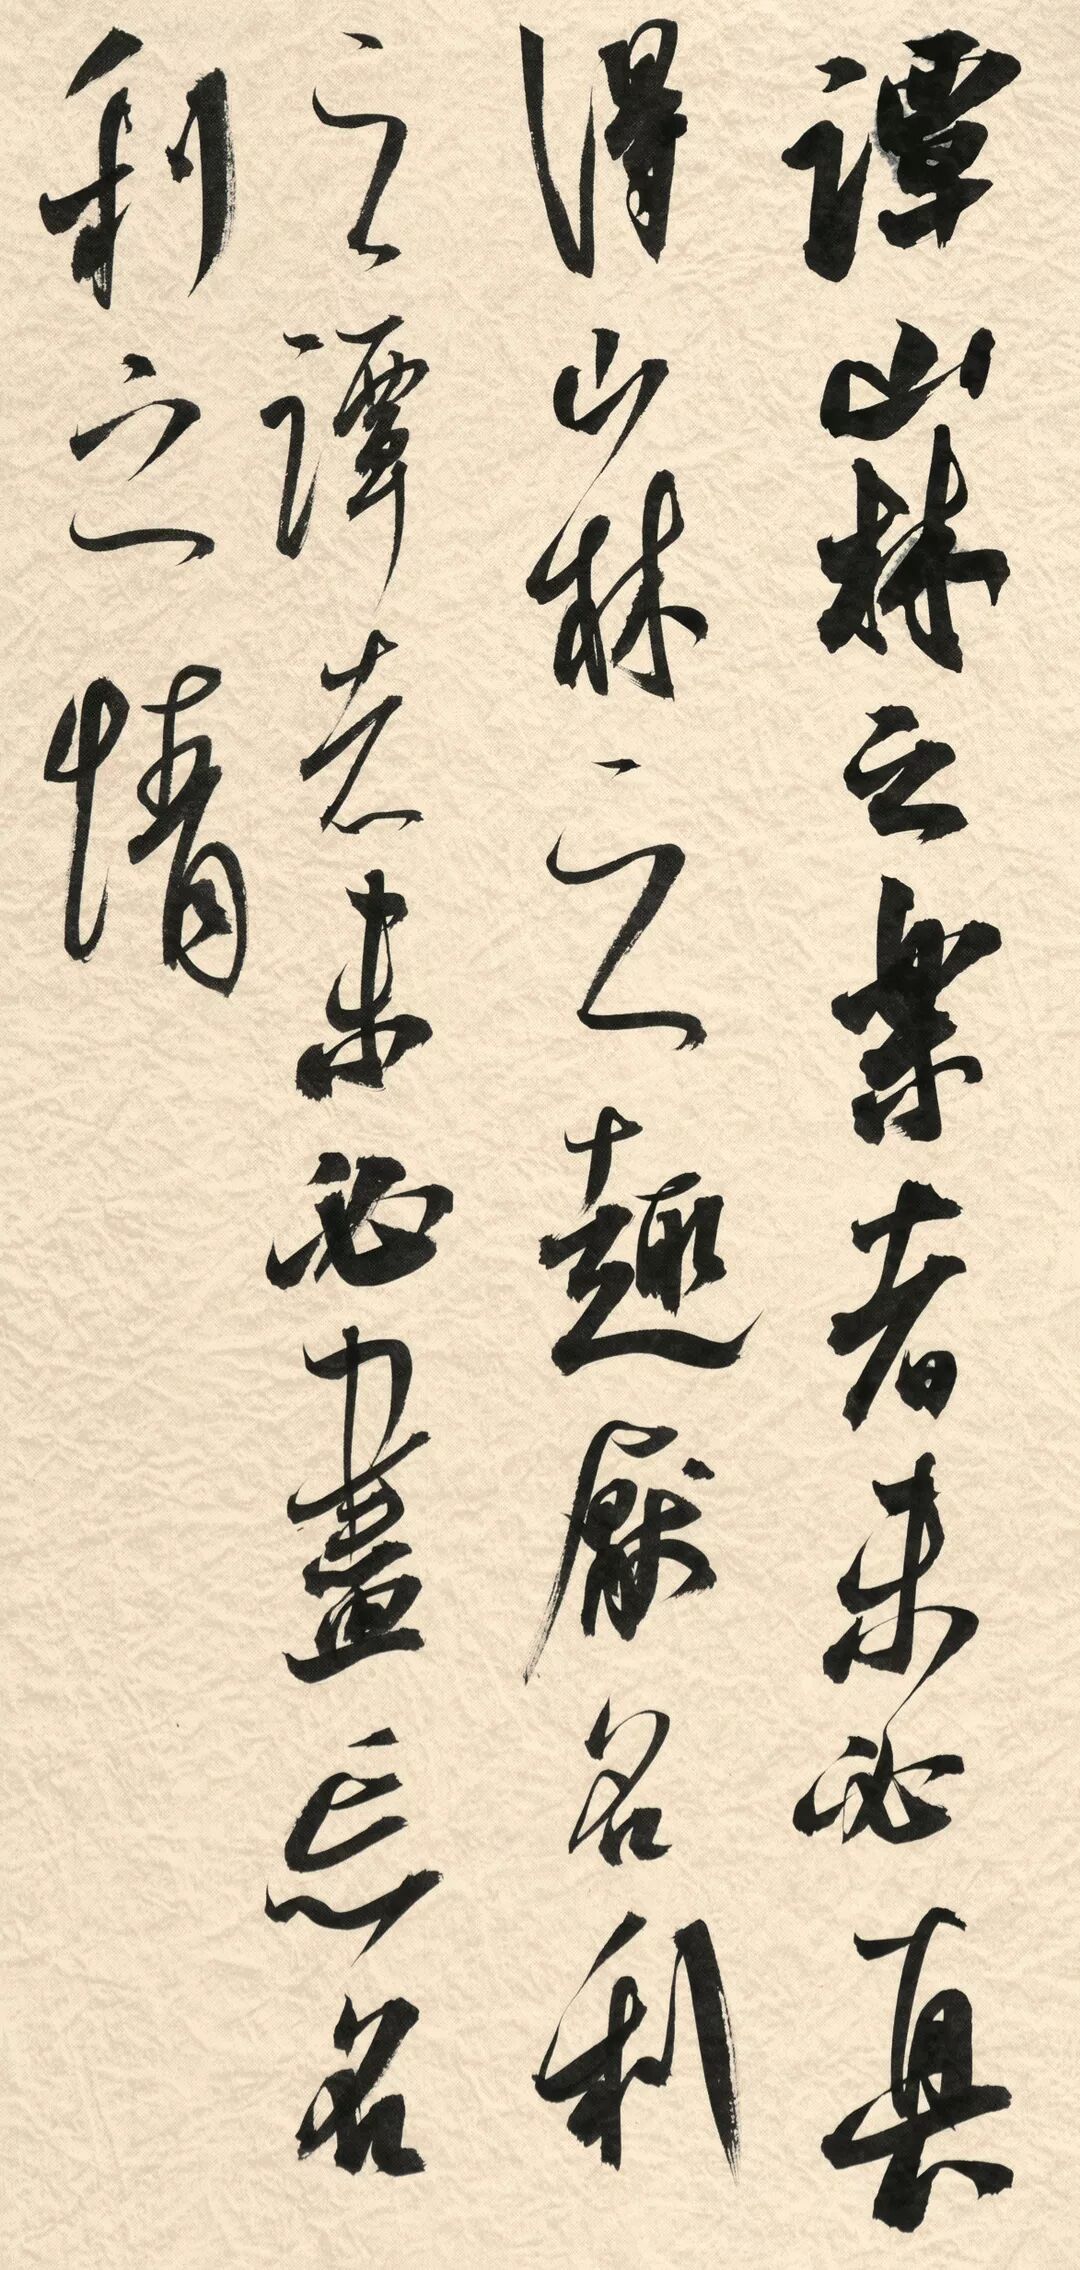 譚山林之樂者未必真
得山林之趣厭名利
之譚者未必盡忘名
利之情